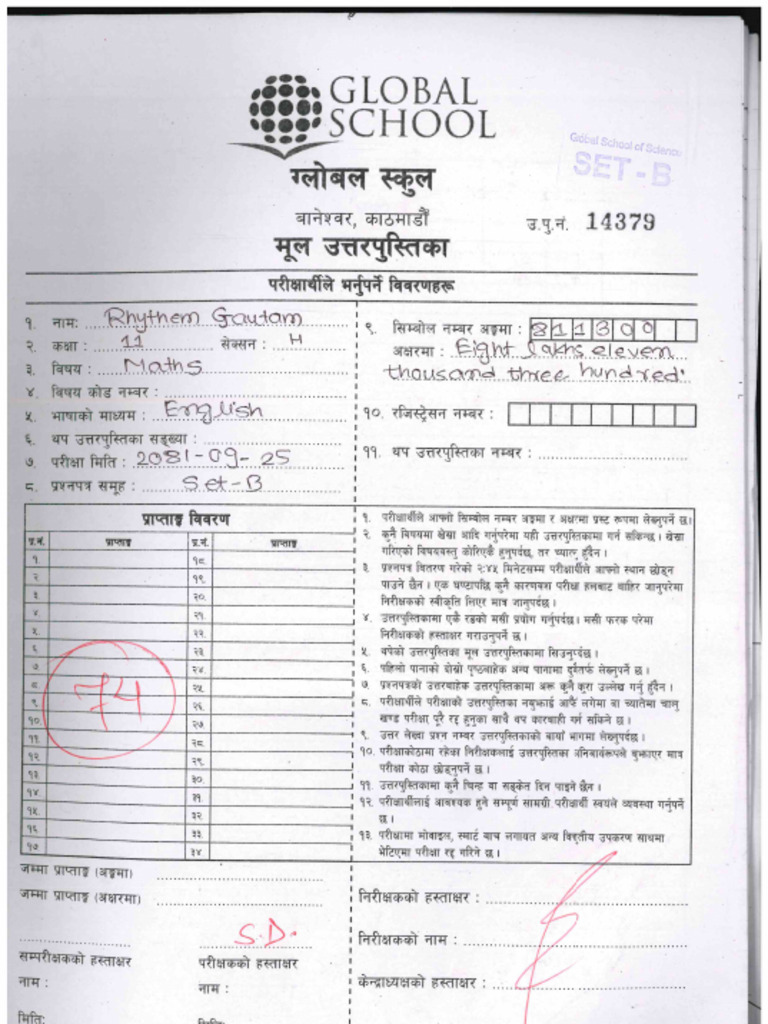 GLOBAL
SCHOOL
Global School of Science
SET - B
ग्लोबल स्कुल
बानेश्वर, काठमाडौं
उ.पु.नं. 14379
मूल उत्तरपुस्तिका
परीक्षार्थीले भर्नुपर्ने विवरणहरू
१. नामः Rhythem Gautam
२. कक्षा : 11 सेक्सन : H
३. विषय : Maths
४. विषय कोड नम्बर :
५. भाषाको माध्यम : English
६. थप उत्तरपुस्तिका सङ्ख्या :
७. परीक्षा मिति : 2081-09-25
८. प्रश्नपत्र समूह : Set-B
९. सिम्बोल नम्बर अङ्कमा : 811300
अक्षरमा : Eight lakhs eleven
thousand three hundred.
१०. रजिस्ट्रेसन नम्बर :
११. थप उत्तरपुस्तिका नम्बर :
प्राप्ताङ्क विवरण
प्र.नं. प्राप्ताङ्क प्र.नं. प्राप्ताङ्क
१. १८.
२. १९.
३. २०.
४. २१.
५. २२.
६. २३.
७. २४.
८. २५.
९. २६.
१०. २७.
११. २८.
१२. २९.
१३. ३०.
१४. ३१.
१५. ३२.
१६. ३३.
१७. ३४.
74
१. परीक्षार्थीले आफ्नो सिम्बोल नम्बर अङ्कमा र अक्षरमा प्रस्ट रूपमा लेख्नुपर्ने छ।
२. कुनै विषयमा खेस्रा आदि गर्नुपरेमा यही उत्तरपुस्तिकामा गर्न सकिन्छ। खेस्रा
गरिएको विषयवस्तु कोरिएकै हुनुपर्दछ, तर च्यात्नु हुँदैन।
३. प्रश्नपत्र वितरण गरेको २:४५ मिनेटसम्म परीक्षार्थीले आफ्नो स्थान छोड्न
पाउने छैन। एक घण्टापछि कुनै कारणवश परीक्षा हलबाट बाहिर जानुपरेमा
निरीक्षकको स्वीकृति लिएर मात्र जानुपर्दछ।
४. उत्तरपुस्तिकामा एकै रङको मसी प्रयोग गर्नुपर्दछ। मसी फरक परेमा
निरीक्षकको हस्ताक्षर गराउनुपर्ने छ।
५. थपेको उत्तरपुस्तिका मूल उत्तरपुस्तिकामा सिउनुपर्दछ।
६. पहिलो पानाको दोस्रो पृष्ठबाहेक अन्य पानामा दुवैतर्फ लेख्नुपर्ने छ।
७. प्रश्नपत्रको उत्तरबाहेक उत्तरपुस्तिकामा अरू कुनै कुरा उल्लेख गर्नु हुँदैन।
८. परीक्षार्थीले परीक्षाको उत्तरपुस्तिका नबुझाई आफैँ लगेमा वा च्यातेमा चालु
खण्ड परीक्षा पूरै रद्द हुनुका साथै थप कारबाही गर्न सकिने छ।
९. उत्तर लेख्दा प्रश्न नम्बर उत्तरपुस्तिकाको बायाँ भागमा लेख्नुपर्दछ।
१०. परीक्षाकोठामा रहेका निरीक्षकलाई उत्तरपुस्तिका अनिवार्यरूपले बुझाएर मात्र
परीक्षा कोठा छोड्नुपर्ने छ।
११. उत्तरपुस्तिकामा कुनै चिन्ह वा सङ्केत दिन पाइने छैन।
१२. परीक्षार्थीलाई आवश्यक हुने सम्पूर्ण सामग्री परीक्षार्थी स्वयंले व्यवस्था गर्नुपर्ने
छ।
१३. परीक्षामा मोबाइल, स्मार्ट वाच लगायत अन्य विद्युतीय उपकरण साथमा
भेटिएमा परीक्षा रद्द गरिने छ।
जम्मा प्राप्ताङ्क (अङ्कमा)
जम्मा प्राप्ताङ्क (अक्षरमा)
S.D.
सम्परीक्षकको हस्ताक्षर परीक्षकको हस्ताक्षर
नाम : नाम :
मिति:
निरीक्षकको हस्ताक्षर :
निरीक्षकको नाम :
केन्द्राध्यक्षको हस्ताक्षर :